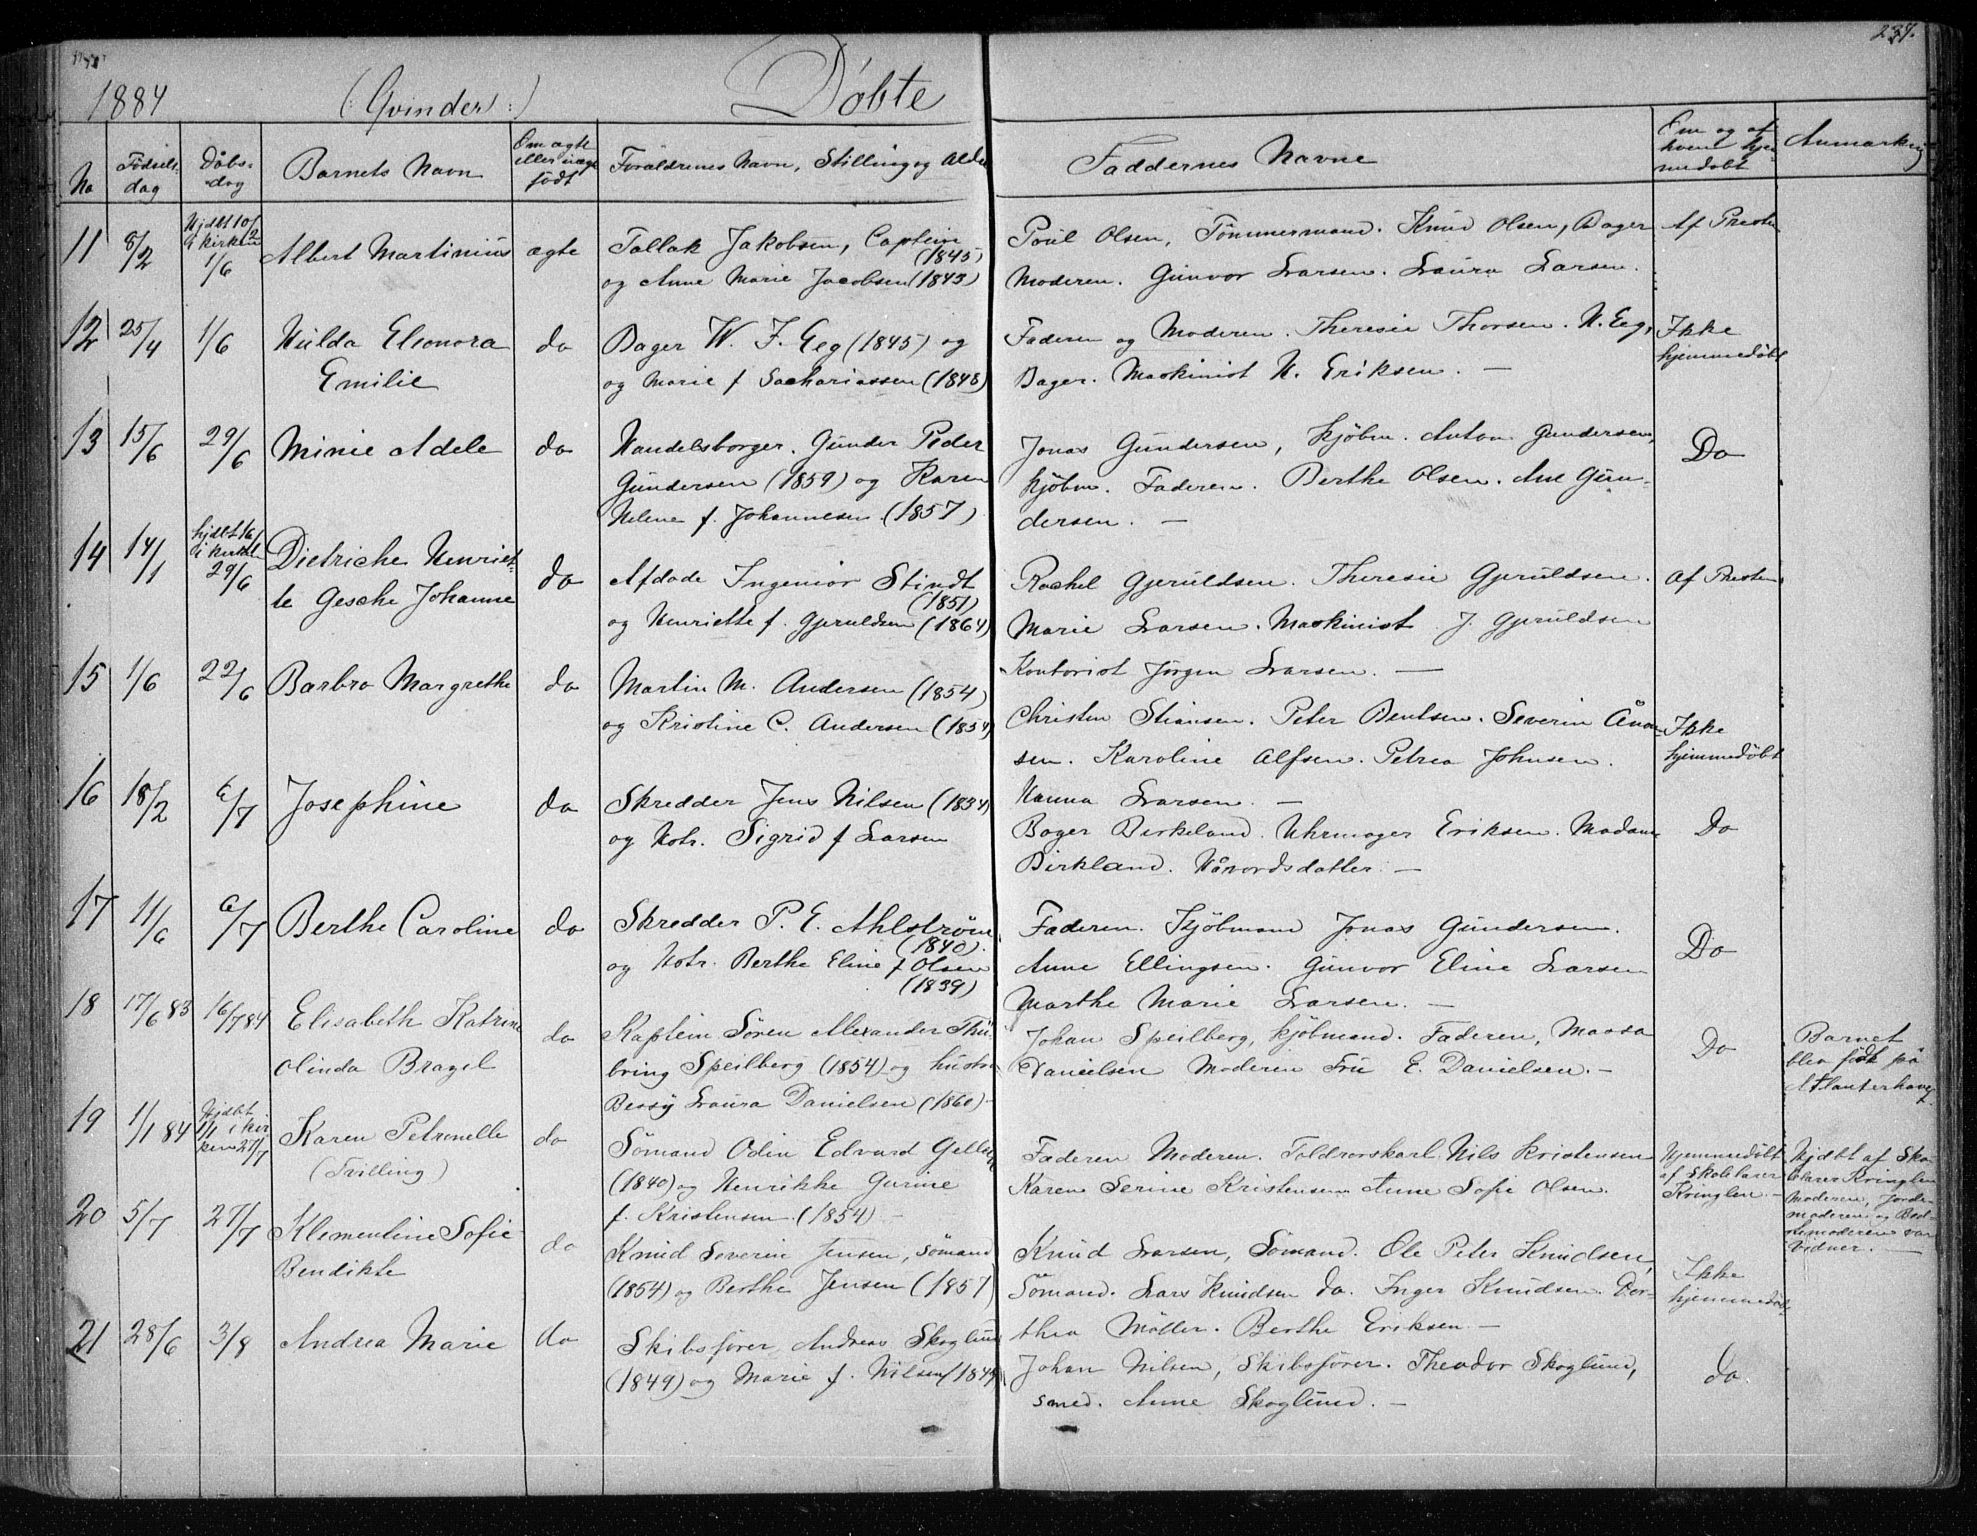 237.
1884 (: Qvinder :) Döbte
No
Födsels-
dag
Döbs-
dag
Barnets Navn
Om ægte
eller uægte
födt
Forældrenes Navn, Stilling og Alder
Faddernes Navne
Em og af
hvem hjem-
medöbt
Anmærkning
11 8/2 Hjdbt 10/2
i kirken
1/6
Albert Martinius ægte
Tallak Jakobsen, Captein
(1845)
og Anne Marie Jacobsen (1843)
Poul Olsen, Tömmermand. Knud Olsen, Bager
Moderen. Gunvor Larsen. Laura Larsen.
Af Presten
12 25/4 1/6 Hilda Eleonora
Emilie
do
Bager W. F. Eeg (1845) og
og Marie f Sachariassen (1848)
Faderen og Moderen. Theresie Thorsen. N. Eeg,
Bager. Maskinist N. Eriksen. —
Ikke
hjemmedöbt
13 15/6 29/6 Minie Adele do
Handelsborger. Gunder Peder
Gundersen (1859) og Karen
Helene f. Johannesen (1857)
Jonas Gundersen, kjöbm. Anton Gundersen,
kjöbm. Faderen. Berthe Olsen. Ane Gun-
dersen. —
Do
14 14/1 hjdbt 16/
i kirken
29/6
Dietriche Henriet-
te Gesche Johanne
do
Afdöde Ingeniör Stindt
(1851)
og Henriette f. Gjeruldsen (1864)
Rachel Gjeruldsen. Theresie Gjeruldsen.
Marie Larsen. Maskinist J. Gjeruldsen
Kontorist Jörgen Larsen. —
Af Presten
15 1/6 22/6 Barbro Margrethe do
Martin M. Andersen (1854)
og Kristine C. Andersen (1854)
Christen Stiansen. Peter Bentsen. Severin Ånon-
sen. Karoline Alfsen. Petrea Johnsen.
Hanna Larsen. —
Ikke
hjemmedöbt
16 18/2 6/7 Josephine do
Skredder Jens Nilsen (1834)
og Hstr. Sigrid f Larsen
Bager Birkeland. Uhrmager Eriksen. Madame
Birkland. Håvordsdatter. —
Do
17 11/6 6/7 Berthe Caroline do
Skredder P. E. Ahlström
(1840).
og Hstr. Berthe Eline f Olsen
(1839)
Faderen. Kjöbmand Jonas Gundersen.
Anne Ellingsen. Gunvor Eline Larsen
Marthe Marie Larsen. —
Do
18 17/6 83 16/7 84 Elisabeth Katrine
Olinda Bragel
do
Kaptein Sören Alexander Thü-
bring Speilberg (1854) og hustru
Bessy Laura Danielsen (1860)
Johan Speilberg, kjöbmand. Faderen, Maasa
Danielsen Moderen Fru E. Danielsen. —
Do
Barnet
blev födt på
Atlanterhavet.
19 1/1 84 Hjdbt
1/1 i kir
ken 27/7
Karen Petronelle
(Trilling)
do
Sömand Odin Edvard Gellesen
(1840) og Henrikke Gurine
f. Kristensen. (1854) —
Faderen Moderen. Toldrorskarl Nils Kristensen
Karen Serine Kristensen Anne Sofie Olsen.
Hjemmedöbt
af Skolelærer
Kringlen. —
Hjdbt af Sko-
lelærer Kringlen
Moderen, Jorde-
moderen og Bed-
stemoderen var
Vidner. —
20 5/7 27/7 Klementine Sofie
Bendikte
do
Knud Severin Jensen, Sömand
(1854) og Berthe Jensen (1857)
Knud Larsen, Sömand. Ole Peter Knudsen,
Sömand. Lars Knudsen do. Inger Knudsen. Dor-
thea Möller. Berthe Eriksen. —
Ikke
hjemmedöbt
21 28/6 3/8 Andrea Marie do
Skibsförer Andreas Skoglund
(1849) og Marie f. Nilsen (1849)
Johan Nilsen, Skibsförer. Theodor Skoglund,
smed. Anne Skoglund. —
do.